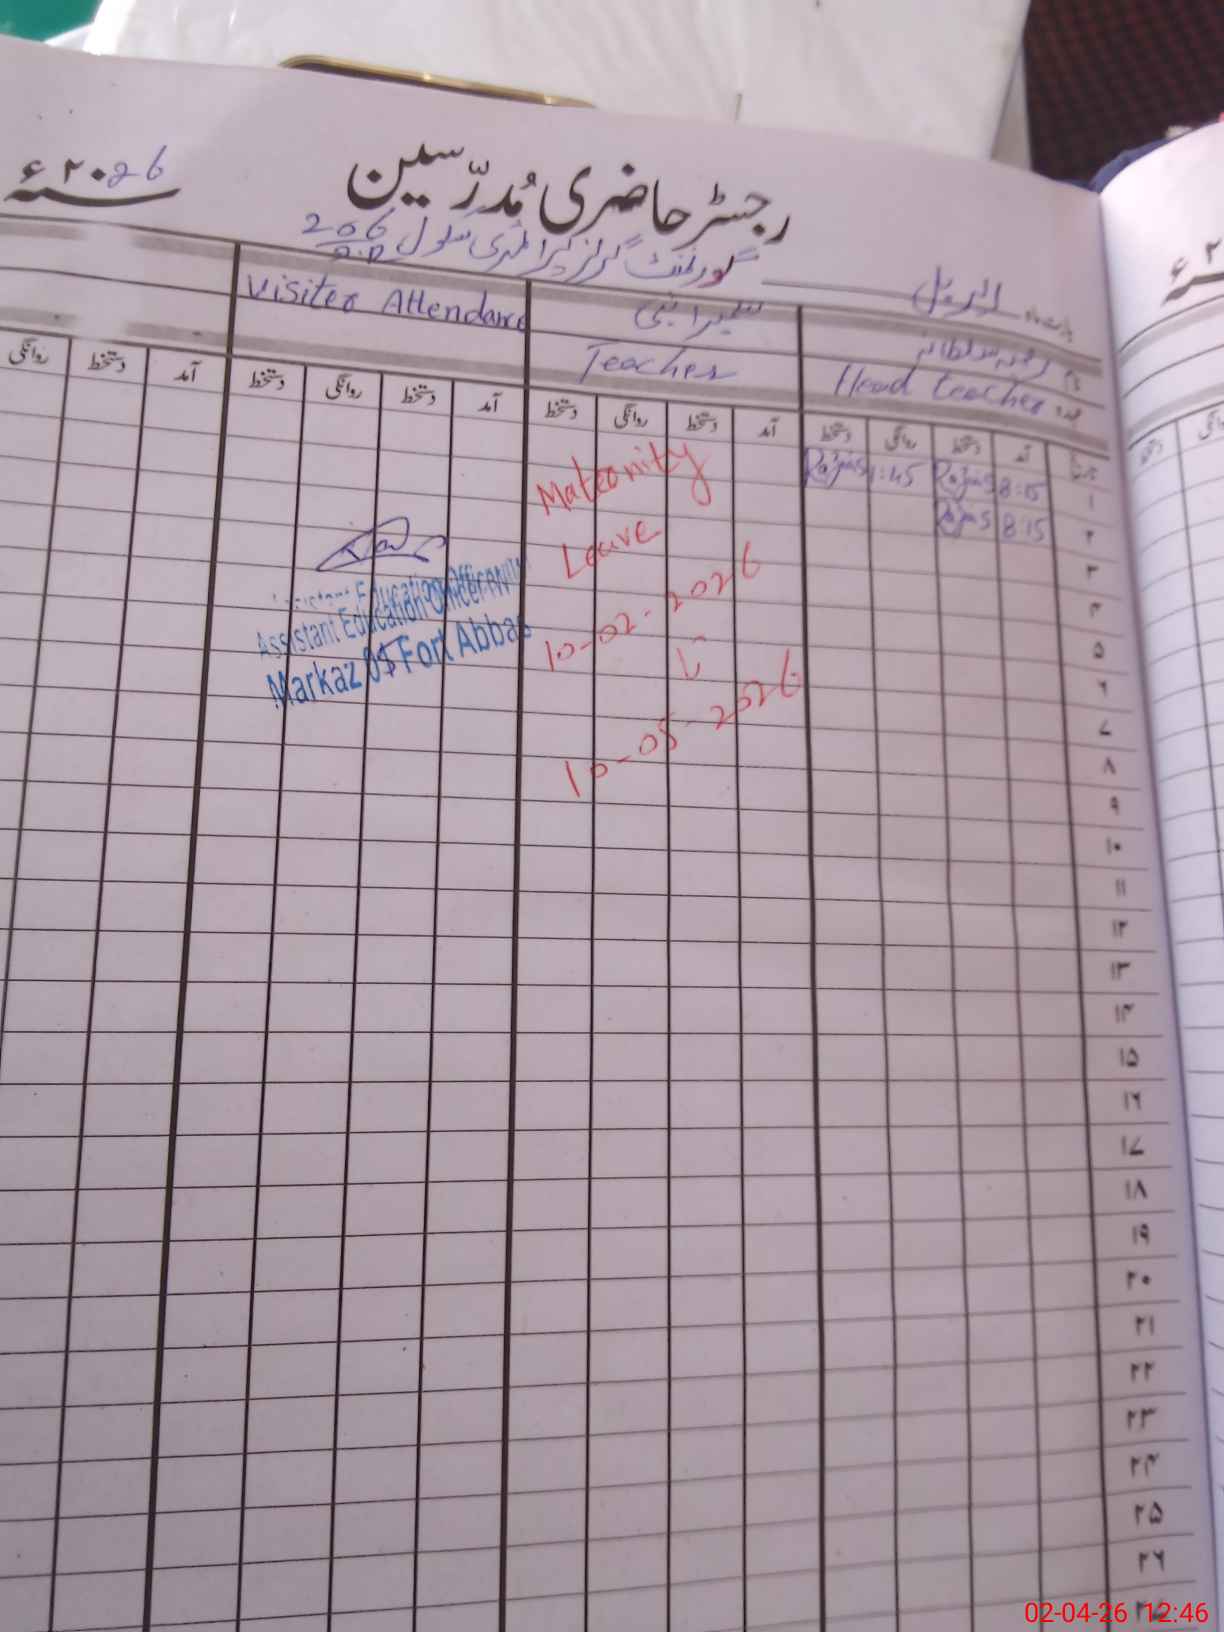 رجسٹر حاضری مُدرّسین
سنہ ۲۰26ء
گورنمنٹ گرلز پرائمری سکول 206
بابت ماہ اپریل
Visiter Attendance
نام
Teacher
Head teacher
عہدہ
تاریخ آمد دستخط روانگی دستخط آمد دستخط روانگی دستخط آمد دستخط روانگی دستخط آمد دستخط روانگی
۱ 8:15 1:45
۲ 8:15
۳
۴
۵
۶
۷
۸
۹
۱۰
۱۱
۱۲
۱۳
۱۴
۱۵
۱۶
۱۷
۱۸
۱۹
۲۰
۲۱
۲۲
۲۳
۲۴
۲۵
۲۶
Maternity
Leave
10-02-2026
تا
10-05-2026
Assistant Education Officer
Markaz 01 Fort Abbas
02-04-26 12:46